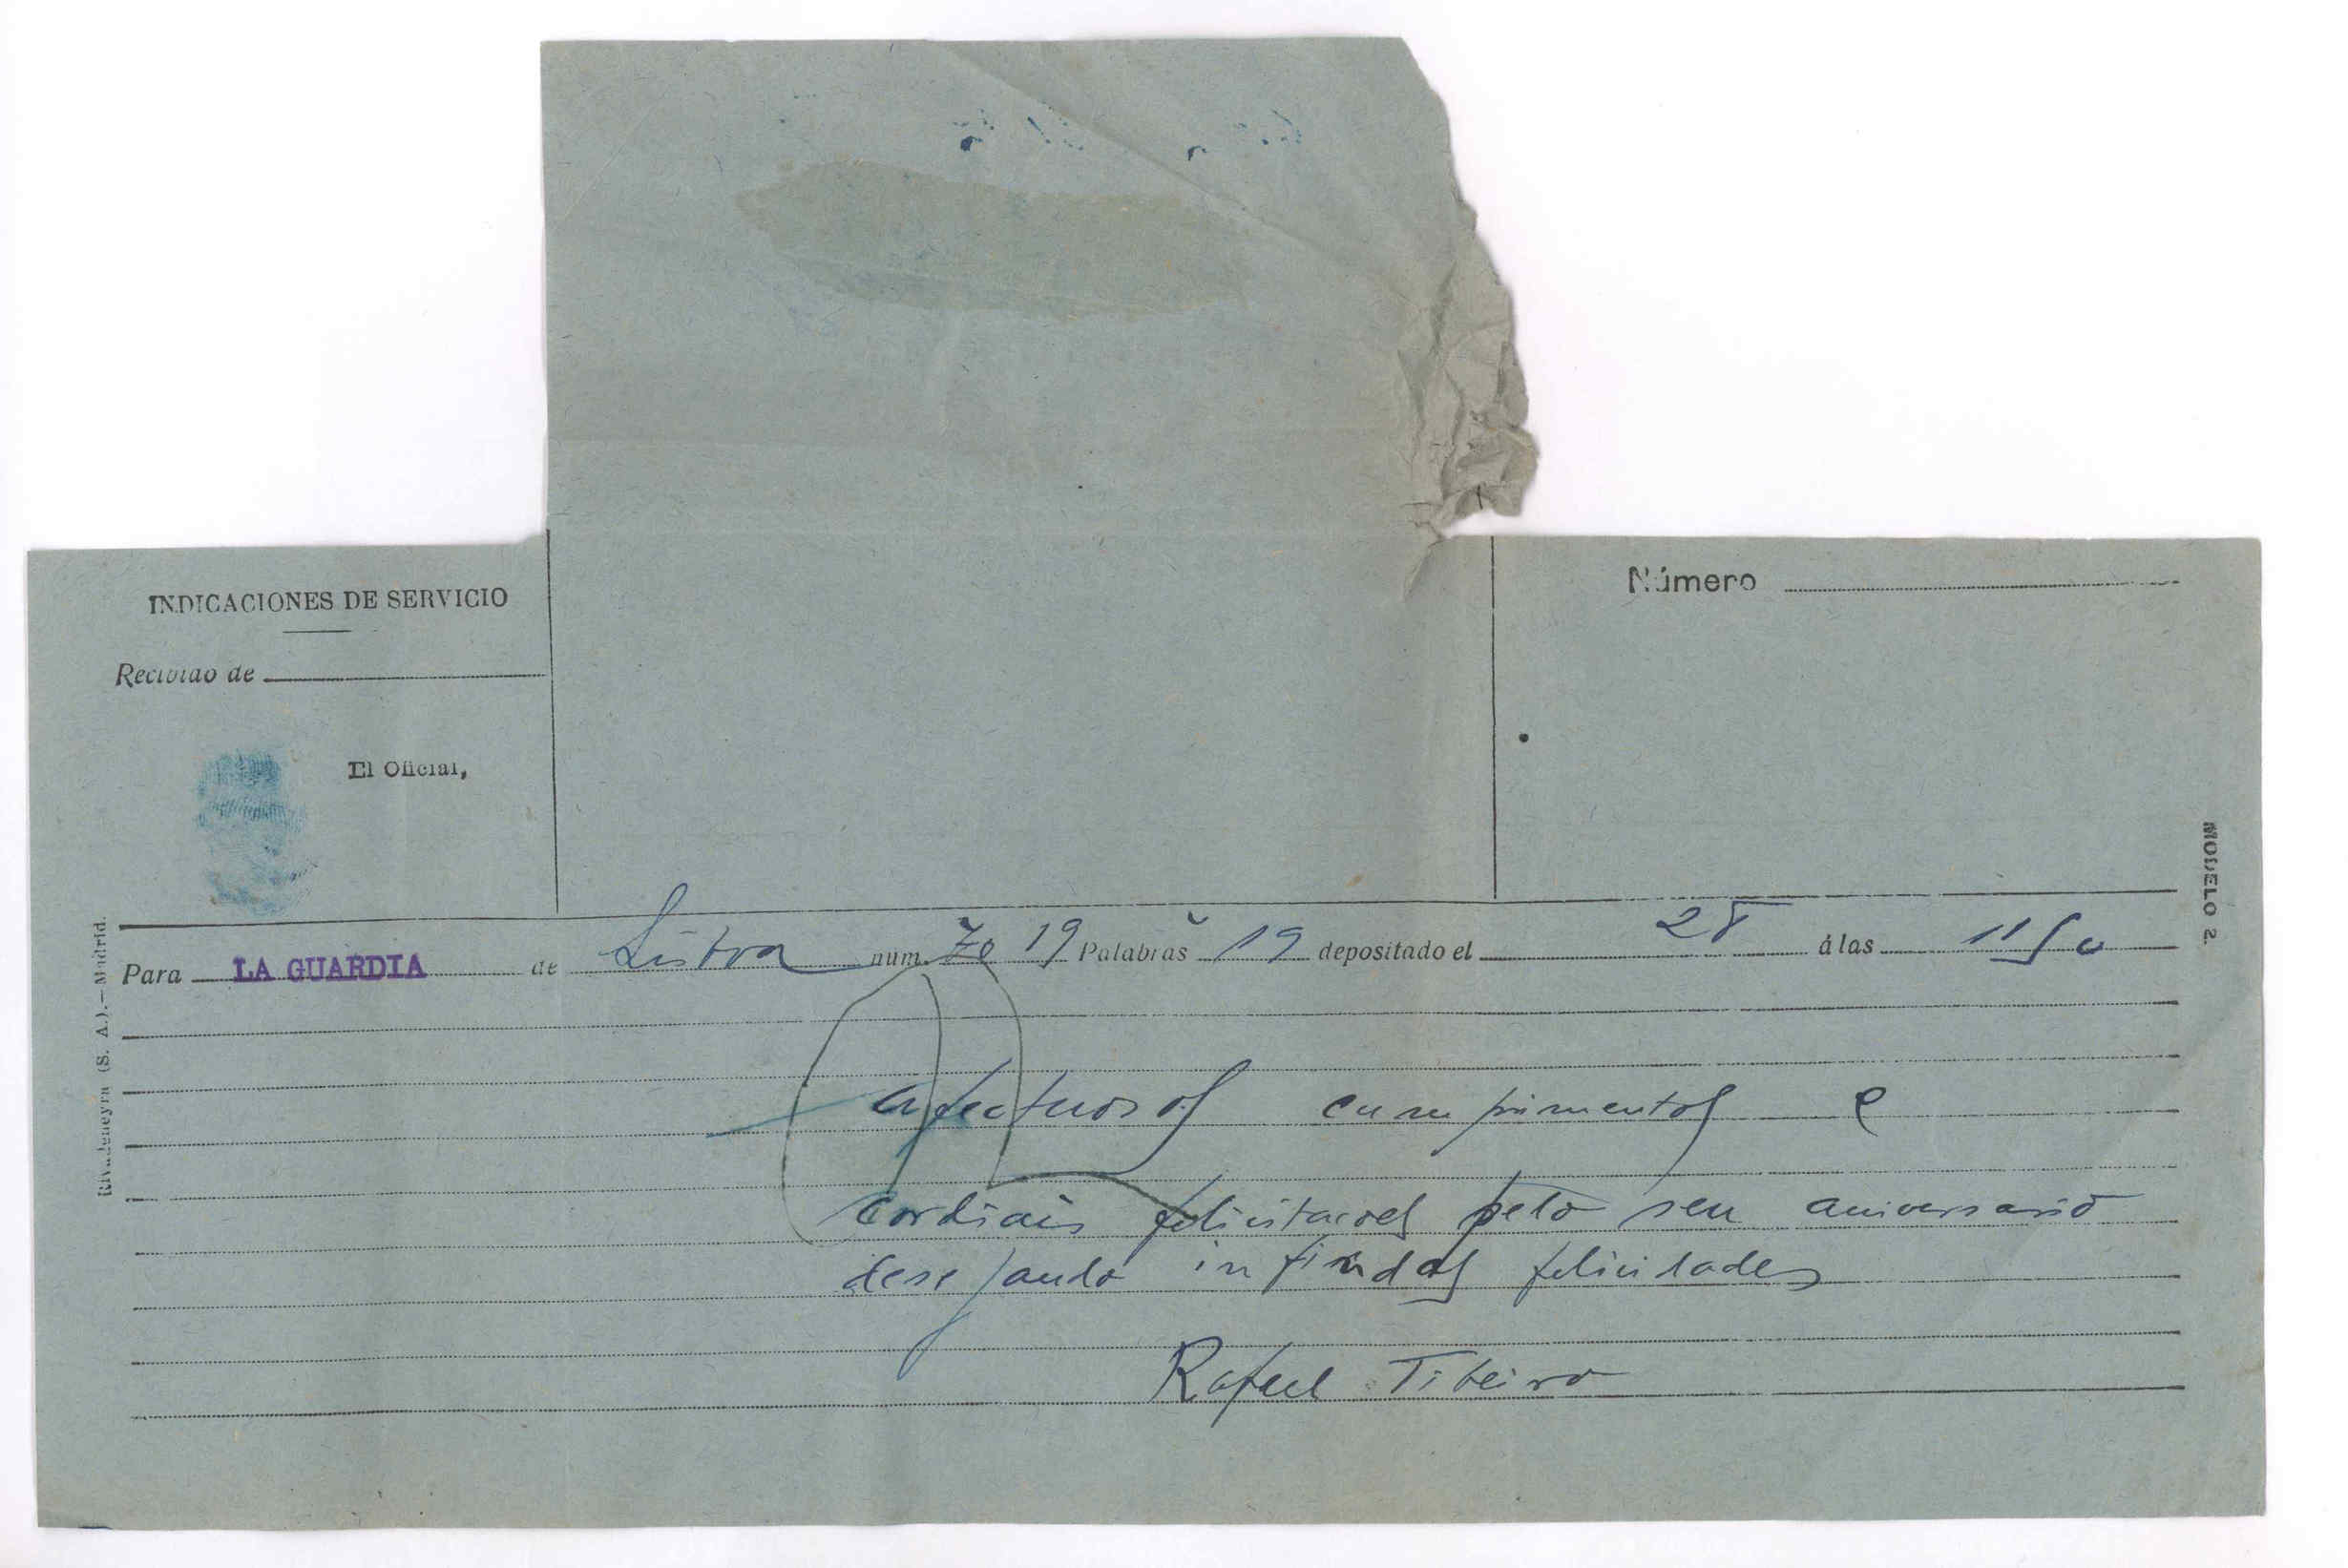 INDICACIONES DE SERVICIO
Número
Recibido de
El Oficial,
MODELO 2.
Rivadeneyra (S. A.).—Madrid.
Para LA GUARDIA de Lisboa num 19 Palabras 19 depositado el 28 á las 11/50
afectuosos cumprimentos e
cordiais felicitacoes pelo seu aniversario
desejando infindas felicidades
Rafael Tibeiro